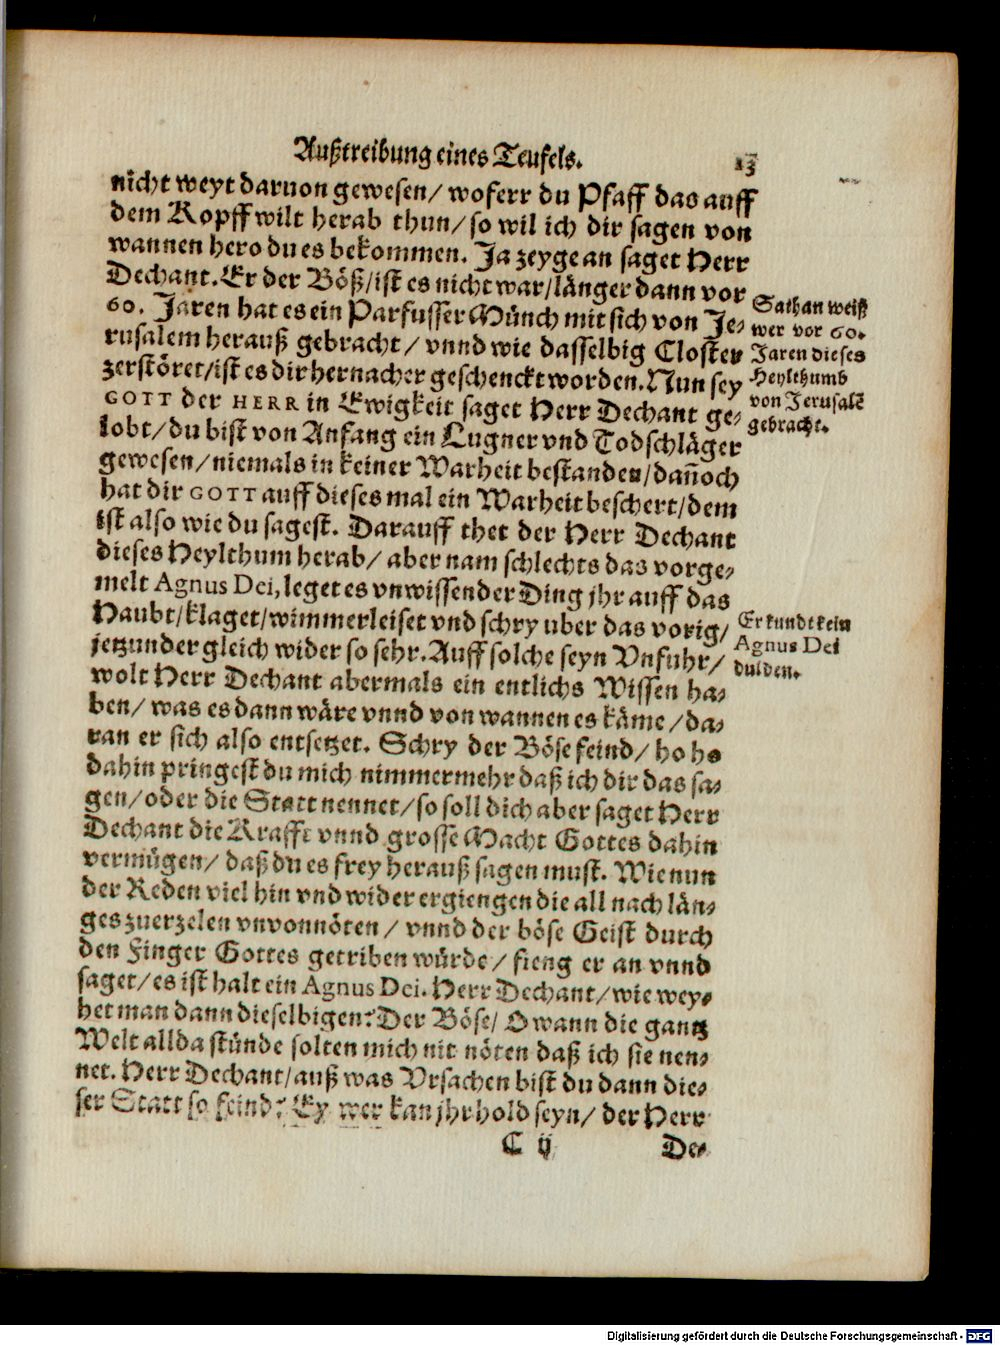 Außtreibung eines Teufels. 13
nicht weyt daruon gewesen/ woferr du Pfaff das auff
dem Kopff wilt herab thun/ so wil ich dir sagen von
wannen hero du es bekommen. Ja zeyge an saget Herr
Dechant. Er der Böß/ ist es nicht war/ länger dann vor
60. Jaren hat es ein Parfusser Münch mit sich von Je-
rusalem herauß gebracht/ vnnd wie dasselbig Closter
zerstöret/ ist es dir hernacher geschenckt worden. Nun sey
GOTT der HERR in Ewigkeit saget Herr Dechant ge-
lobt/ du bist von Anfang ein Lugner vnd Todschläger
gewesen/ niemals in keiner Warheit bestanden/ dañoch
hat dir GOTT auff dieses mal ein Warheit beschert/ dem
ist also wie du sagest. Darauff thet der Herr Dechant
dieses Heylthum herab/ aber nam schlechts das vorge-
melt Agnus Dei, leget es vnwissender Ding jhr auff das
Haubt/ klaget/ wimmerleiset vnd schry uber das vorig/
jetzunder gleich wider so sehr. Auff solche seyn Vnfuhr/
wolt Herr Dechant abermals ein entlichs Wissen ha-
ben/ was es dann wäre vnnd von wannen es käme/ da-
ran er sich also entsetzet. Schry der Böse feind/ ho ho
dahin pringest du mich nimmermehr daß ich dir das sa-
gen/ oder die Statt nennet/ so soll dich aber saget Herr
Dechant die Krafft vnnd grosse Macht Gottes dahin
vermügen/ daß du es frey herauß sagen must. Wie nun
der Reden viel hin vnd wider ergiengen die all nach län-
ges zuerzelen vnvonnöten/ vnnd der böse Geist durch
den Finger Gottes getriben würde/ fieng er an vnnd
saget/ es ist halt ein Agnus Dei. Herr Dechant/ wie wey-
het man dann dieselbigen? Der Böse/ O wann die gantz
Welt allda stünde solten mich nit nöten daß ich sie nen-
net. Herr Dechant/ auß was Vrsachen bist du dann die-
ser Statt so feind? Ey wer kan jhr hold seyn/ der Herr
C ij De-
Sathan weiß
wer vor 60.
Jaren dieses
Heylthumb
von Jerusalē
gebracht.
Er kundt kein
Agnus Dei
dulden.
Digitalisierung gefördert durch die Deutsche Forschungsgemeinschaft - DFG